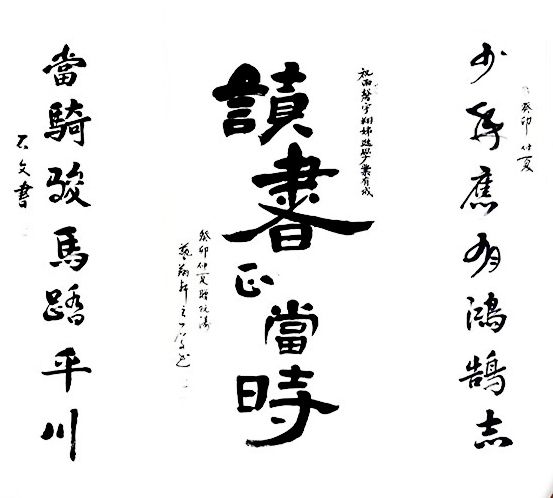 癸卯仲夏
少年應有鴻鵠志
祝雨馨宇翔姊學業有成
讀書正當時
癸卯仲夏贈
藝翔軒主
當騎駿馬踏平川
石文書